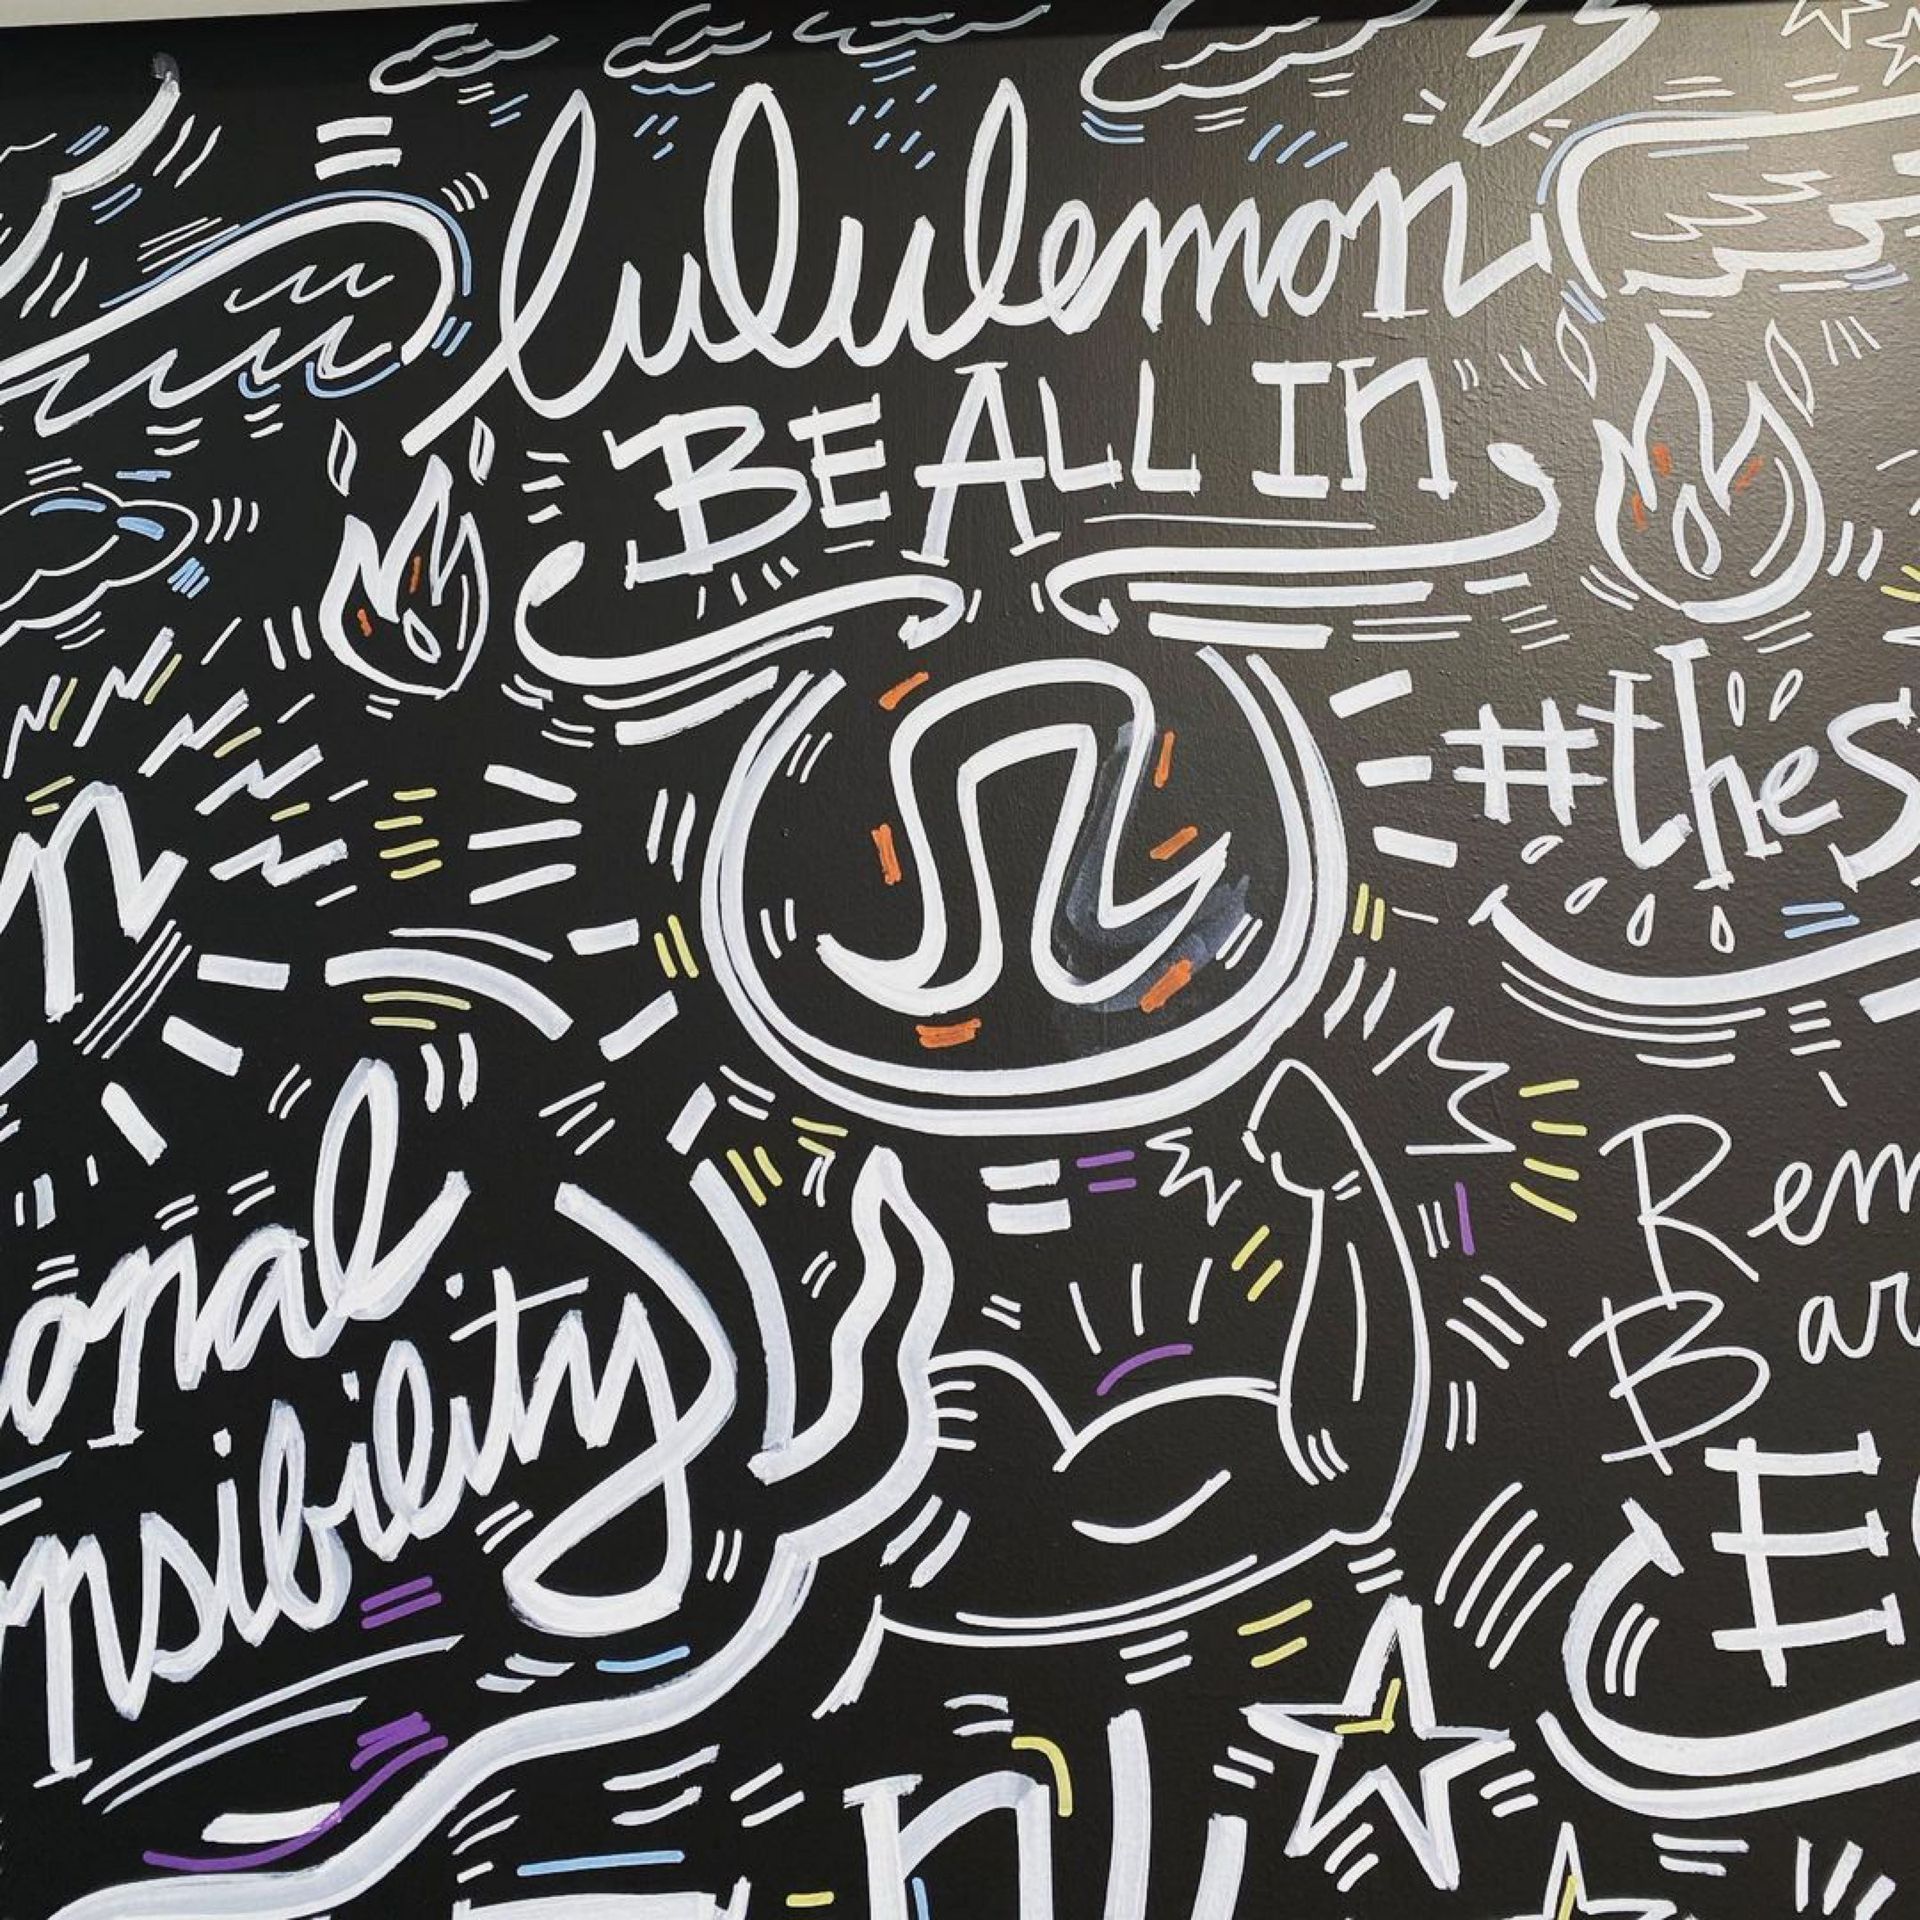 lululemon
BE ALL IN
#theS
n
Rem
Bar
onal
nsibility
E
n